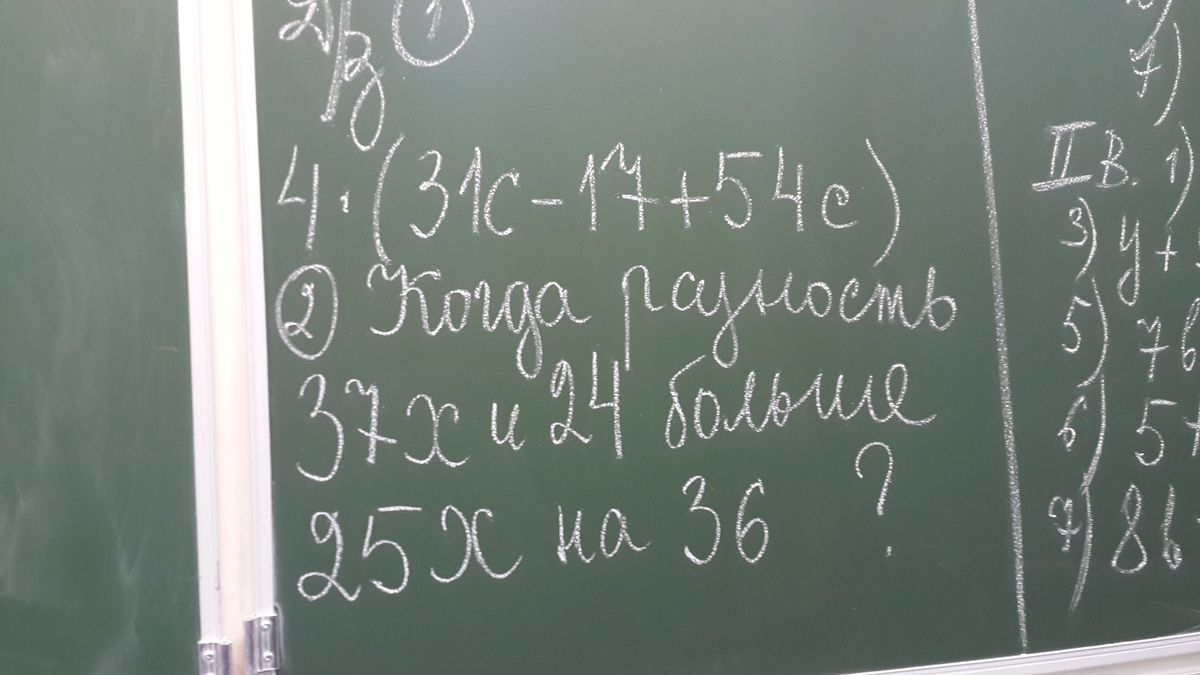 Д/з ①
4·(31c-17+54c)
② Когда разность
37x и 24 больше
25x на 36 ?
7)
II В. 1)
3) y+
5) 76
6) 5
7) 8